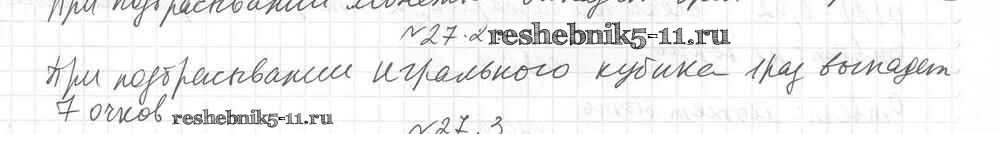 При подбрасывании монеты
№27.2 reshebnik5-11.ru
При подбрасывании игрального кубика 1 раз выпадет
7 очков reshebnik5-11.ru
№27.3